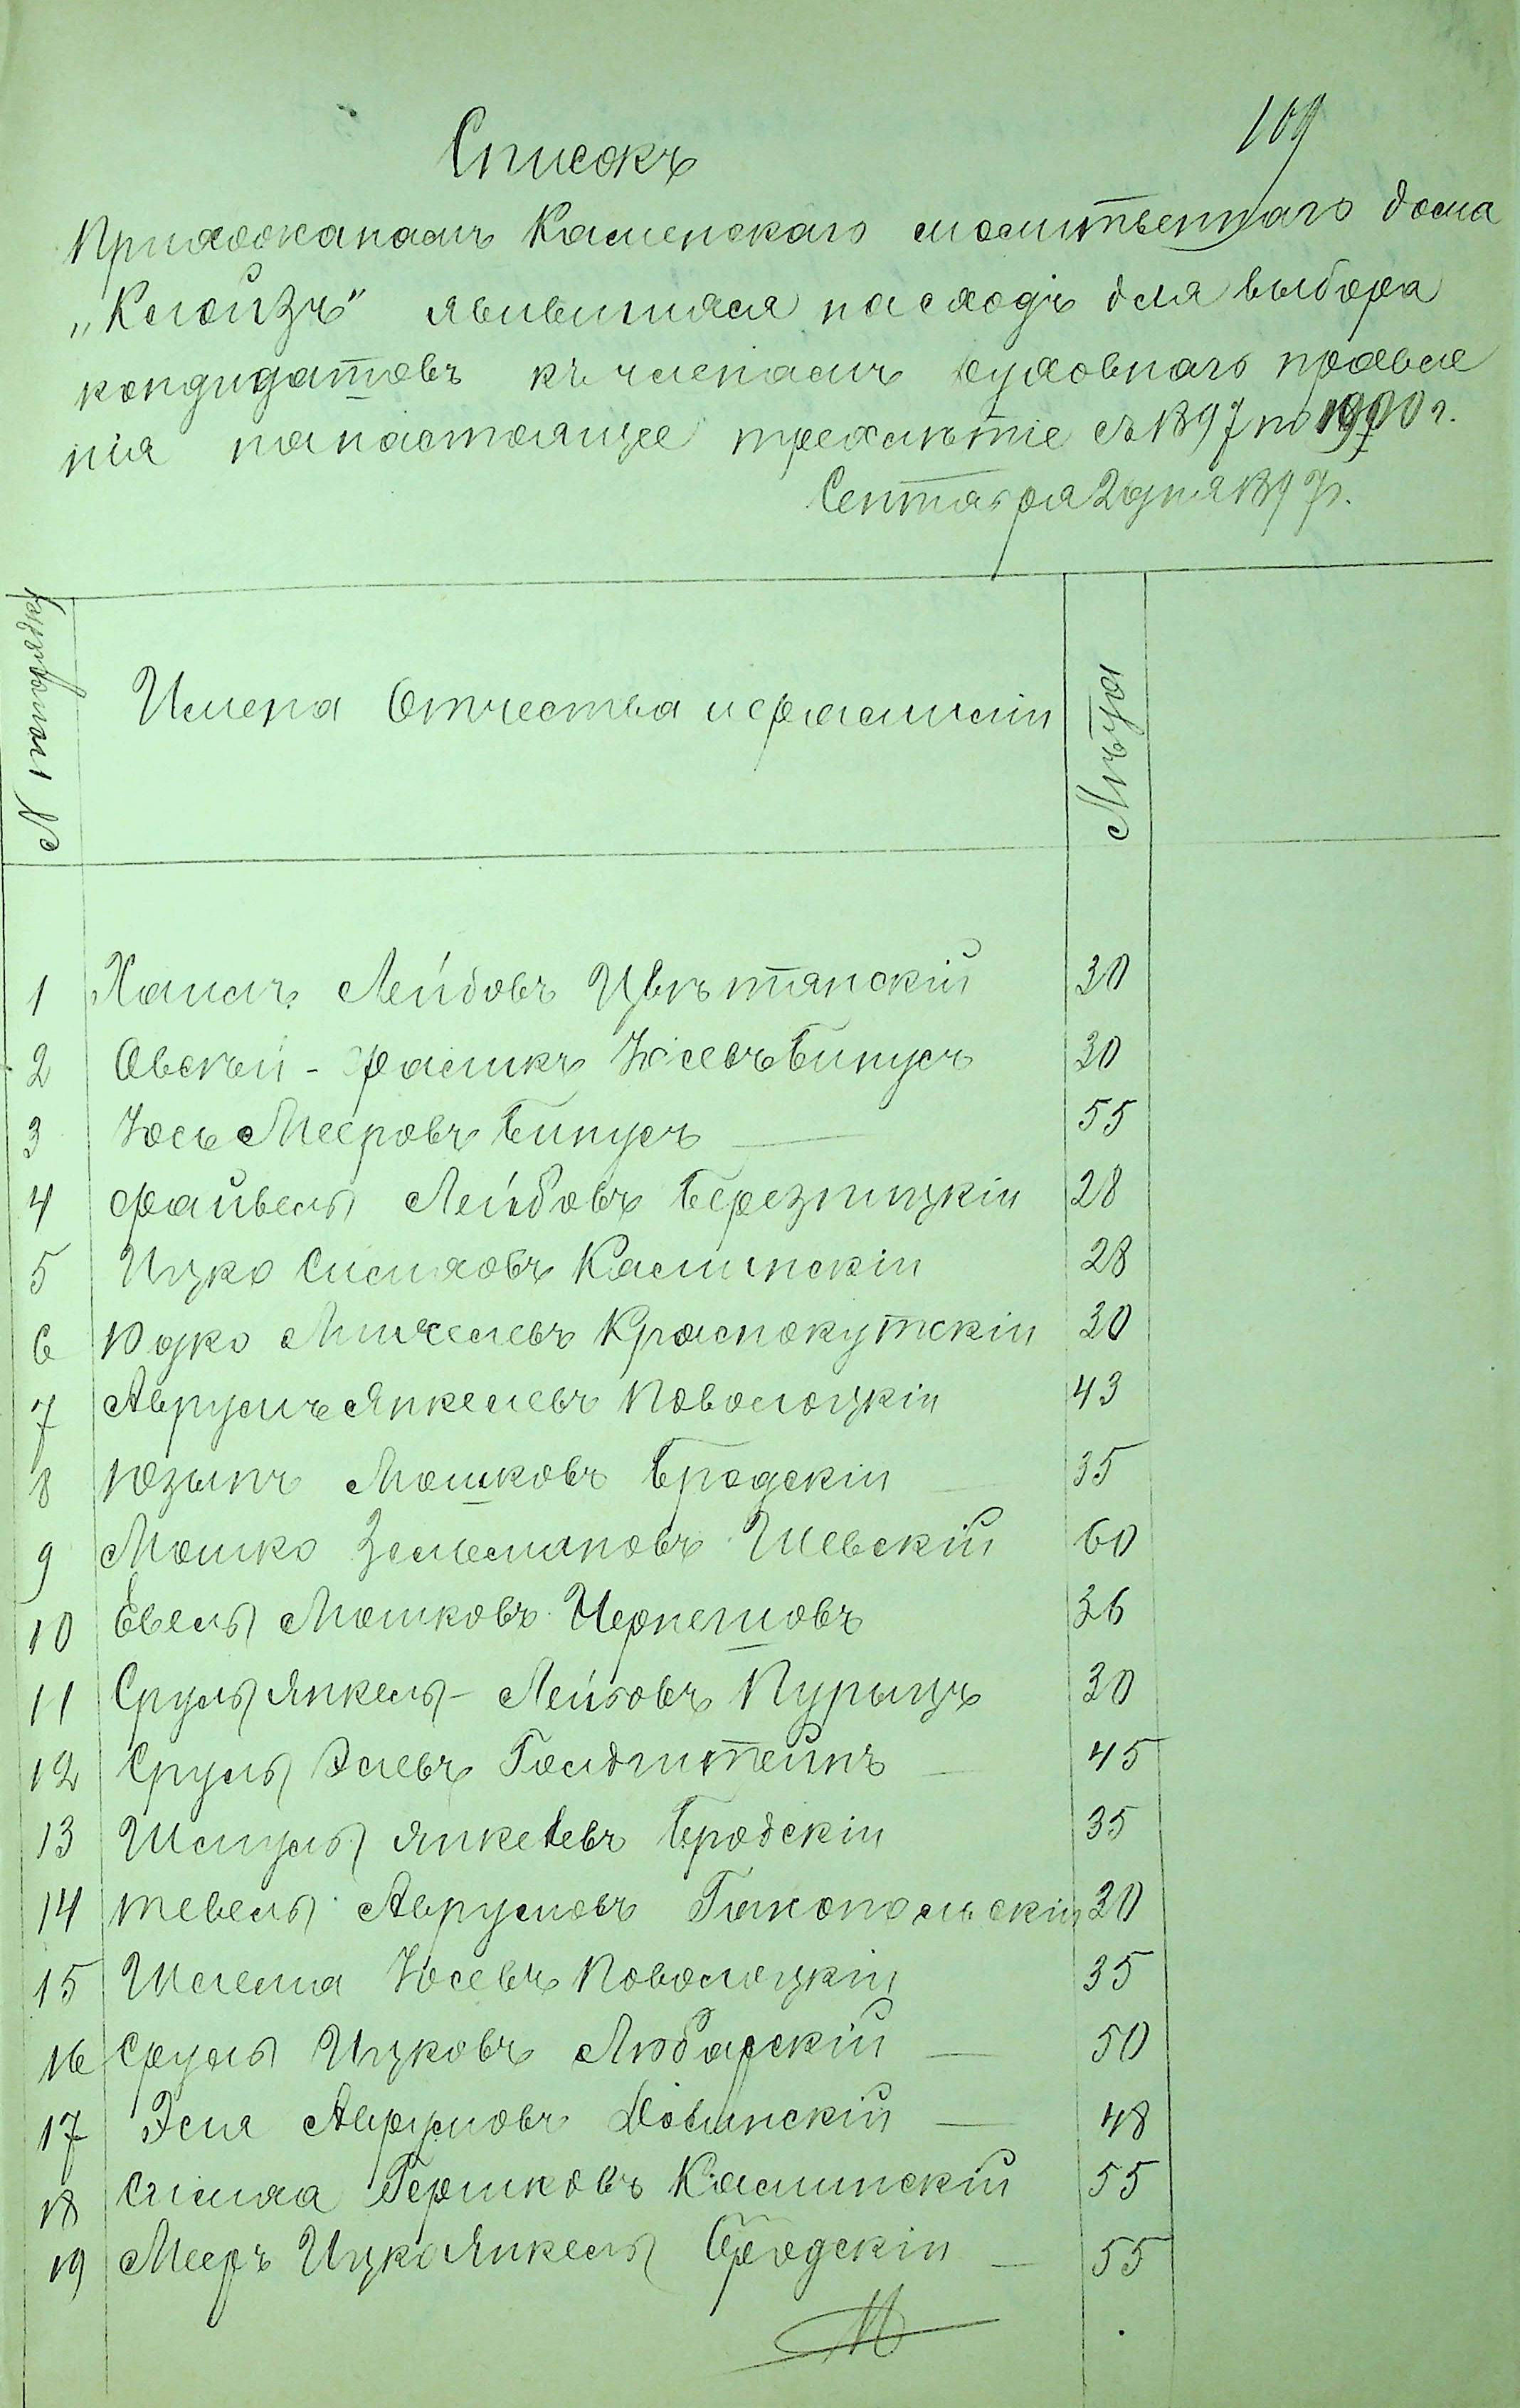 109
Списокъ
Прихожанамъ Каменскаго молитвеннаго дома
„Клойзъ" явившихся на сходъ для выбора
кондидатовъ къ членамъ духовнаго правле
нія на настоящее трехлѣтіе съ 1897 по 1900 г.
Сентября 2 дня 1897 г.
№ по порядку
Имена Отчества и фамиліи
Лѣта
1 Хаимъ Лейбовъ Цвѣтанскій 30
2 Овсѣй - Фаликъ Іосевъ Бинусъ 30
3 Іось Мееровъ Бинусъ 55
4 Файвель Лейбовъ Березницкій 28
5 Ицко Симховъ Каминскій 28
6 Юдко Краснокутскій 30
7 Аврумъ Янкелевъ Новолоцкій 43
8 Мошковъ Бродскій 35
9 Мошко Зельмановъ Шевскій 60
10 Евель Мошковъ Чернетовъ 36
11 Сруль Янкель - Лейбовъ Пурыцъ 30
12 Сруль Элевъ Голдштейнъ 45
13 Шмуль Янкелевъ Бродскій 35
14 Тевель Аврумовъ 30
15 Шлема Іосевъ Новолоцкій 35
16 Сруль Ицковъ Любарскій 50
17 Эля Аврумовъ 48
18 Симха Гершковъ Каминскій 55
19 Мееръ Ицко Янкель Бродскій 55